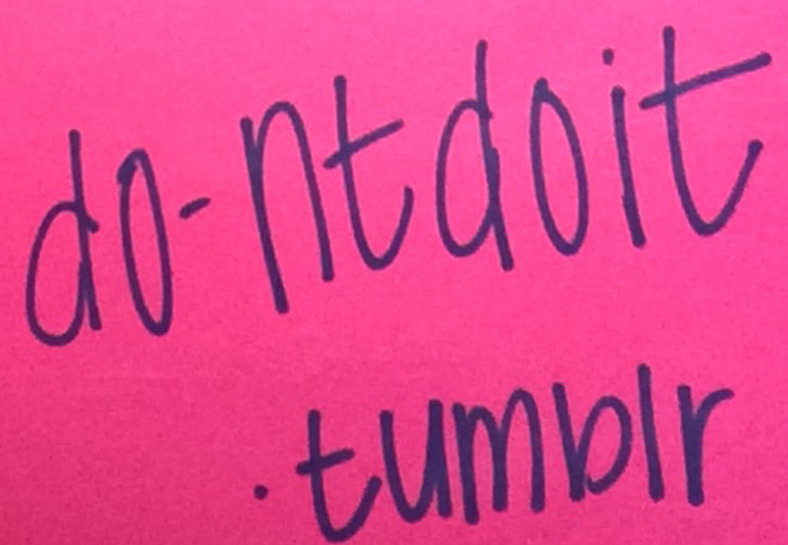 do-ntdoit
.tumblr